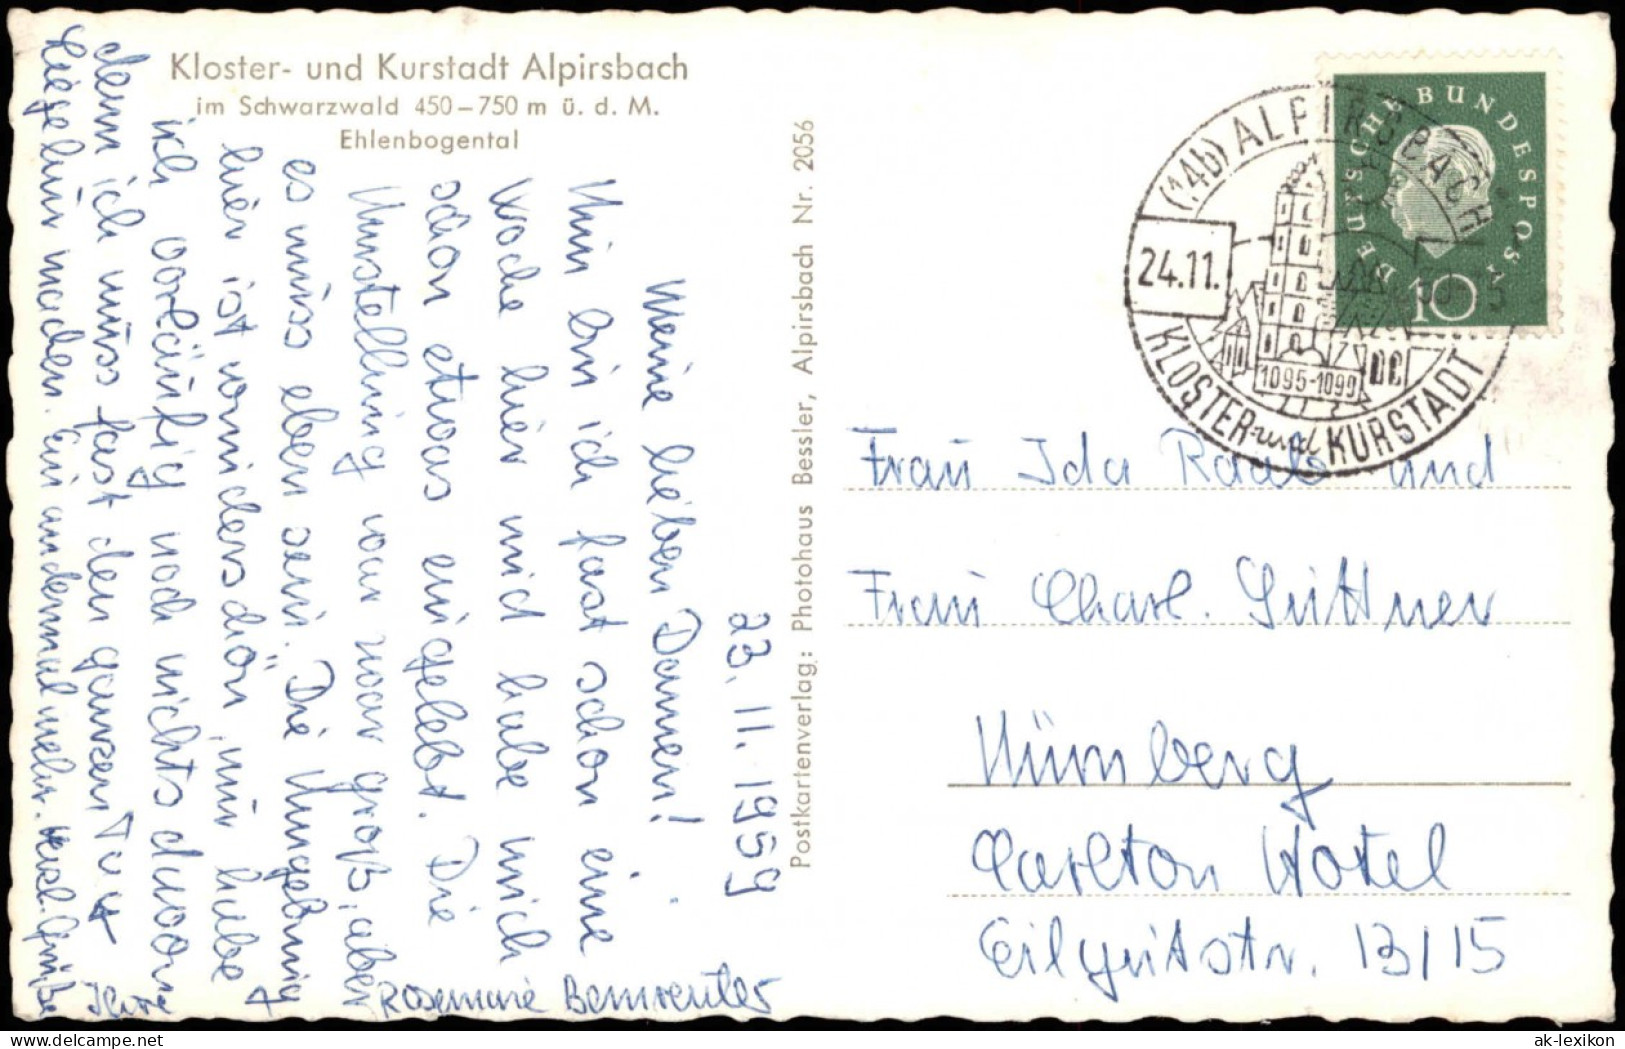 Kloster- und Kurstadt Alpirsbach
im Schwarzwald 450–750 m ü. d. M.
Ehlenbogental
23. 11. 1959
Meine lieben Damen!
Nun bin ich fast schon eine
Woche hier und habe mich
schon etwas eingelebt. Die
Umstellung war zwar groß, aber
es muss eben sein. Die Umgebung
hier ist wunderschön, nur habe
ich vorläufig noch nichts davon
denn ich muss fast den ganzen Tag
Liegekur machen. Ein andermal mehr. Herzl. Grüße
Ihre Rosemarie
Postkartenverlag: Photohaus Bessler, Alpirsbach Nr. 2056
(14b) ALPIRSBACH
24.11.
1095-1099
KLOSTER und KURSTADT
DEUTSCHE BUNDESPOST
10
Frau Ida Raab und
Frau Charl. Güttner
Nürnberg
Carlton Hotel
Eilgutstr. 13/15
ak-lexikon